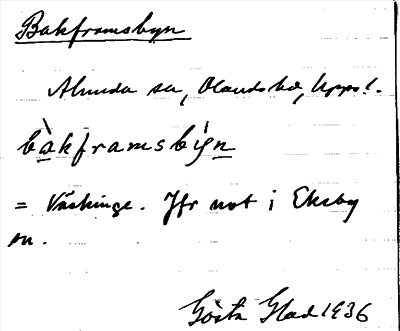 Bakframsbyn
Almunda sn, Olandshd, Uppsl.
bàkframsbýn
= Väskinge. Jfr not i Eksby
sn.
Gösta Glad 1936